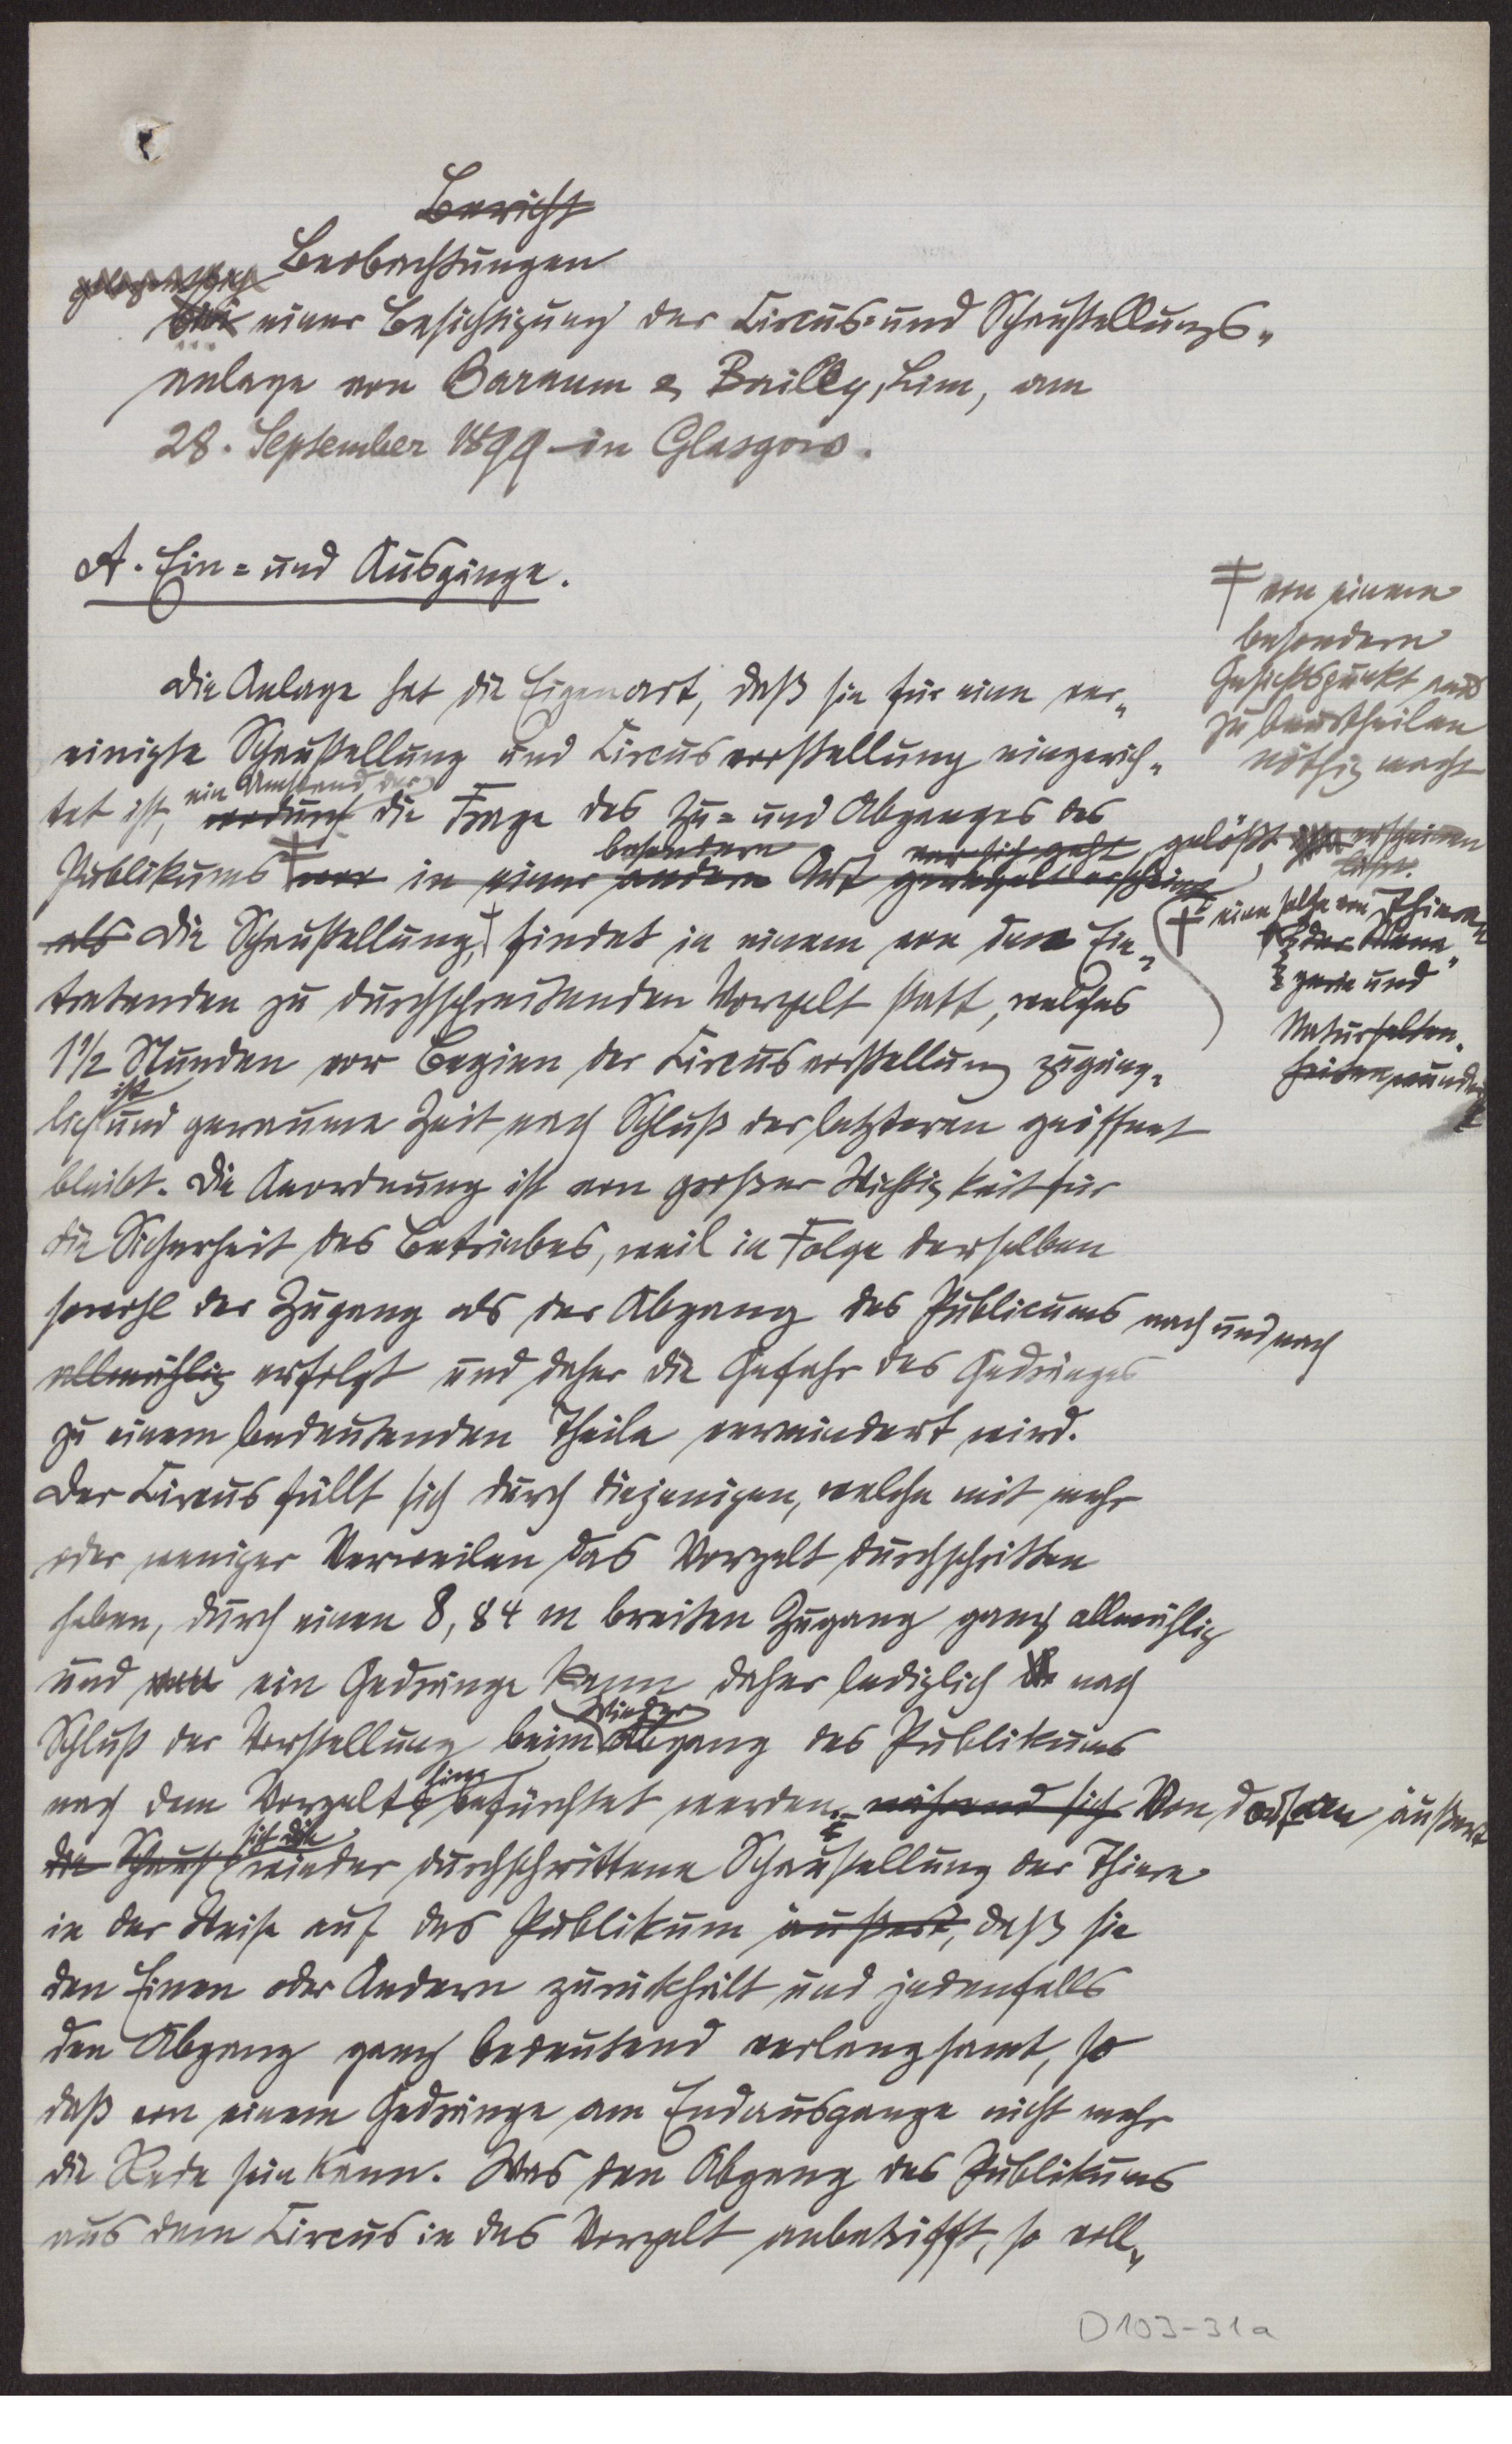 Bericht
Beobachtungen
gelegentlich
bei einer Besichtigung der Circus- und Schaustellungs-
anlage von Barnum & Bailey, Lim, am
28. September 1899 in Glasgow.
A. Ein- und Ausgänge.
Die Anlage hat die Eigenart, daß sie für eine ver-
einigte Schaustellung und Circusvorstellung eingerich-
ein Umstand der
tet ist, wodurch die Frage des Zu- und Abganges des
besondern vor sich geht gelößt erscheinen
Publikums in einer andern Art
als Die Schaustellung, findet in einem von den Ein-
tretenden zu durchschreitenden Vorzelt statt, welches
1 1/2 Stunden vor Beginn der Circusvorstellung zugäng-
ist
lich und geraume Zeit nach Schluß der letzteren geöffnet
bleibt. Die Anordnung ist von großer Wichtigkeit für
die Sicherheit des Betriebes, weil in Folge derselben
sowohl der Zugang als der Abgang des Publicums nach und nach
allmählig erfolgt und daher die Gefahr des Gedränges
zu einem bedeutenden Theile vermindert wird.
Der Circus füllt sich durch diejenigen, welche mit mehr
oder weniger Verweilen das Vorzelt durchschritten
haben, durch einen 8,84 m breiten Zugang ganz allmählig
und ein Gedränge kann daher lediglich nach
Wieder
Schluß der Vorstellung beim Abgang des Publikums
hin
nach dem Vorzelt befürchtet werden. während sich Von dort an äußert
sich die
die Schaust wieder durchschrittene Schaustellung der Thiere
in der Weise auf das Publikum äußert, daß sie
den Einen oder Andern zurückhält und jedenfalls
den Abgang ganz bedeutend verlangsamt, so
daß von einem Gedränge am Endausgange nicht mehr
die Rede sein kann. Was den Abgang des Publikums
aus dem Circus in das Vorzelt anbetrifft, so voll-
von einem
besondern
Gesichtspunkt aus
zu beurtheilen
nöthig macht
eine solche von Thieren
der Mena-
gerie und
Naturselten-
heiten
D103-31a